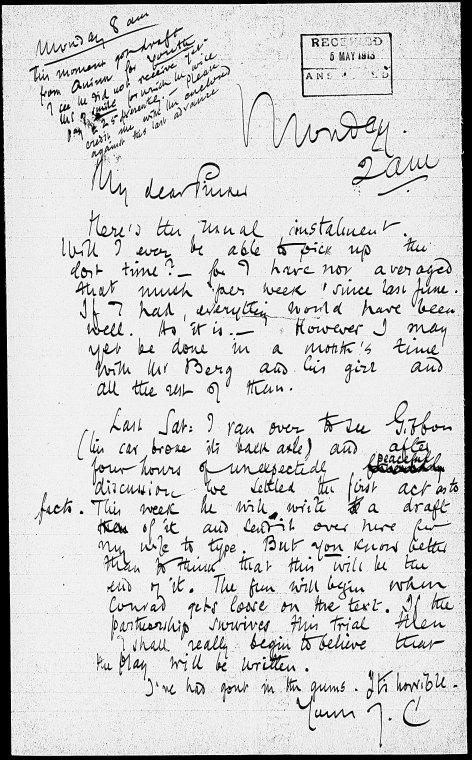 Monday 8 am
This moment got draft
from Quinn for Youth
I see he did not receive yet
the of for which he will
pay £25 presently. — please
credit me with the enclosed
against this last advance
RECEIVED
5 MAY 1913
ANSWERED
Monday.
2 am
My dear Pinker
Here's the usual instalment.
Will I ever be able to pick up the
lost time? — for I have not averaged
that much per week since last June.
If I had, everything would have been
well. As it is. — However I may
yet be done in a month's time
with Mr Berg and his girl and
all the rest of them.
Last Sat: I ran over to see Gibbon
(his car broke its back axle) and after
four hours of unexpectedly peaceful
discussion we settled the first act as to
facts. This week he will write a draft
of it and send it over here for
my wife to type. But you know better
than to think that this will be the
end of it. The fun will begin when
Conrad gets loose on the text. If the
partnership survives this trial then
I shall really begin to believe that
the play will be written.
I've had gout in the gums. It's horrible.
Yours J. C